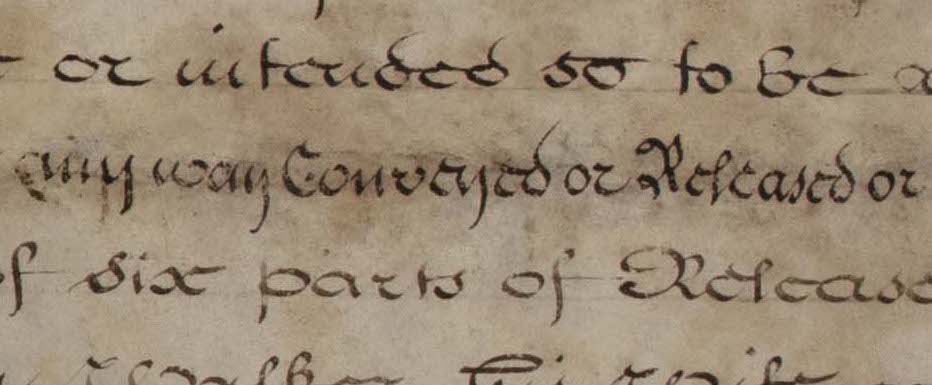 or intended so to be
any way Conveyed or Released or
of six parts of Release